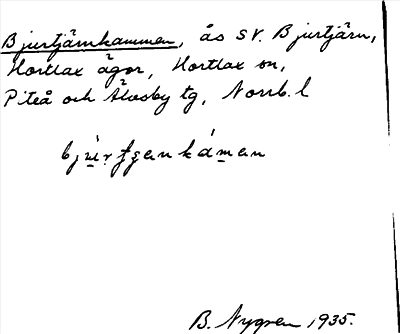 Bjurtjärnkammen, ås SV. Bjurtjärn,
Hortlax ägor, Hortlax sn,
Piteå och Älvsby tg, Norrb. l
B. Nygren 1935.